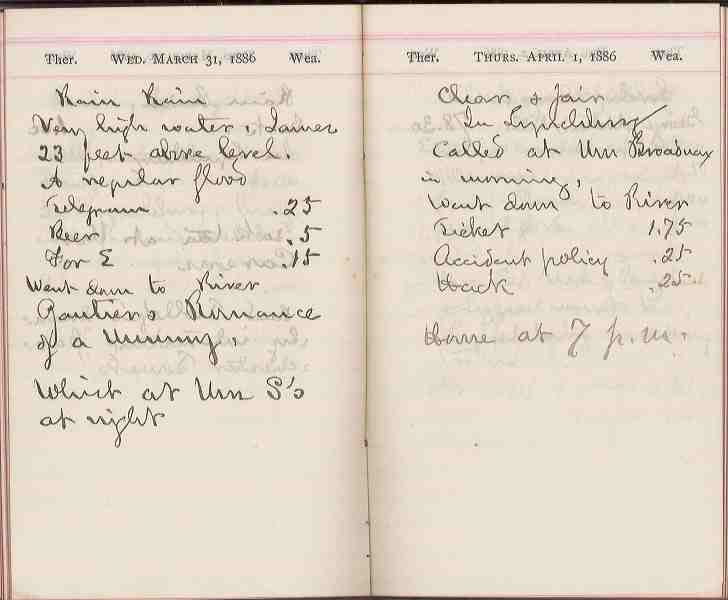 Ther. WED. MARCH 31, 1886 Wea.
Rain Rain
Very high water, James
23 feet above level.
A regular flood
Telegram .25
Beer .5
For E .15
Went down to River
Gautier's Romance
of a Mummy.
Whist at Wm S's
at night
Ther. THURS. APRIL 1, 1886 Wea.
Clear & fair
In Lynchburg
Called at Wm Broadway
in morning,
Went down to River
Ticket 1.75
Accident policy .25
Hack .25
Home at 7 p.m.